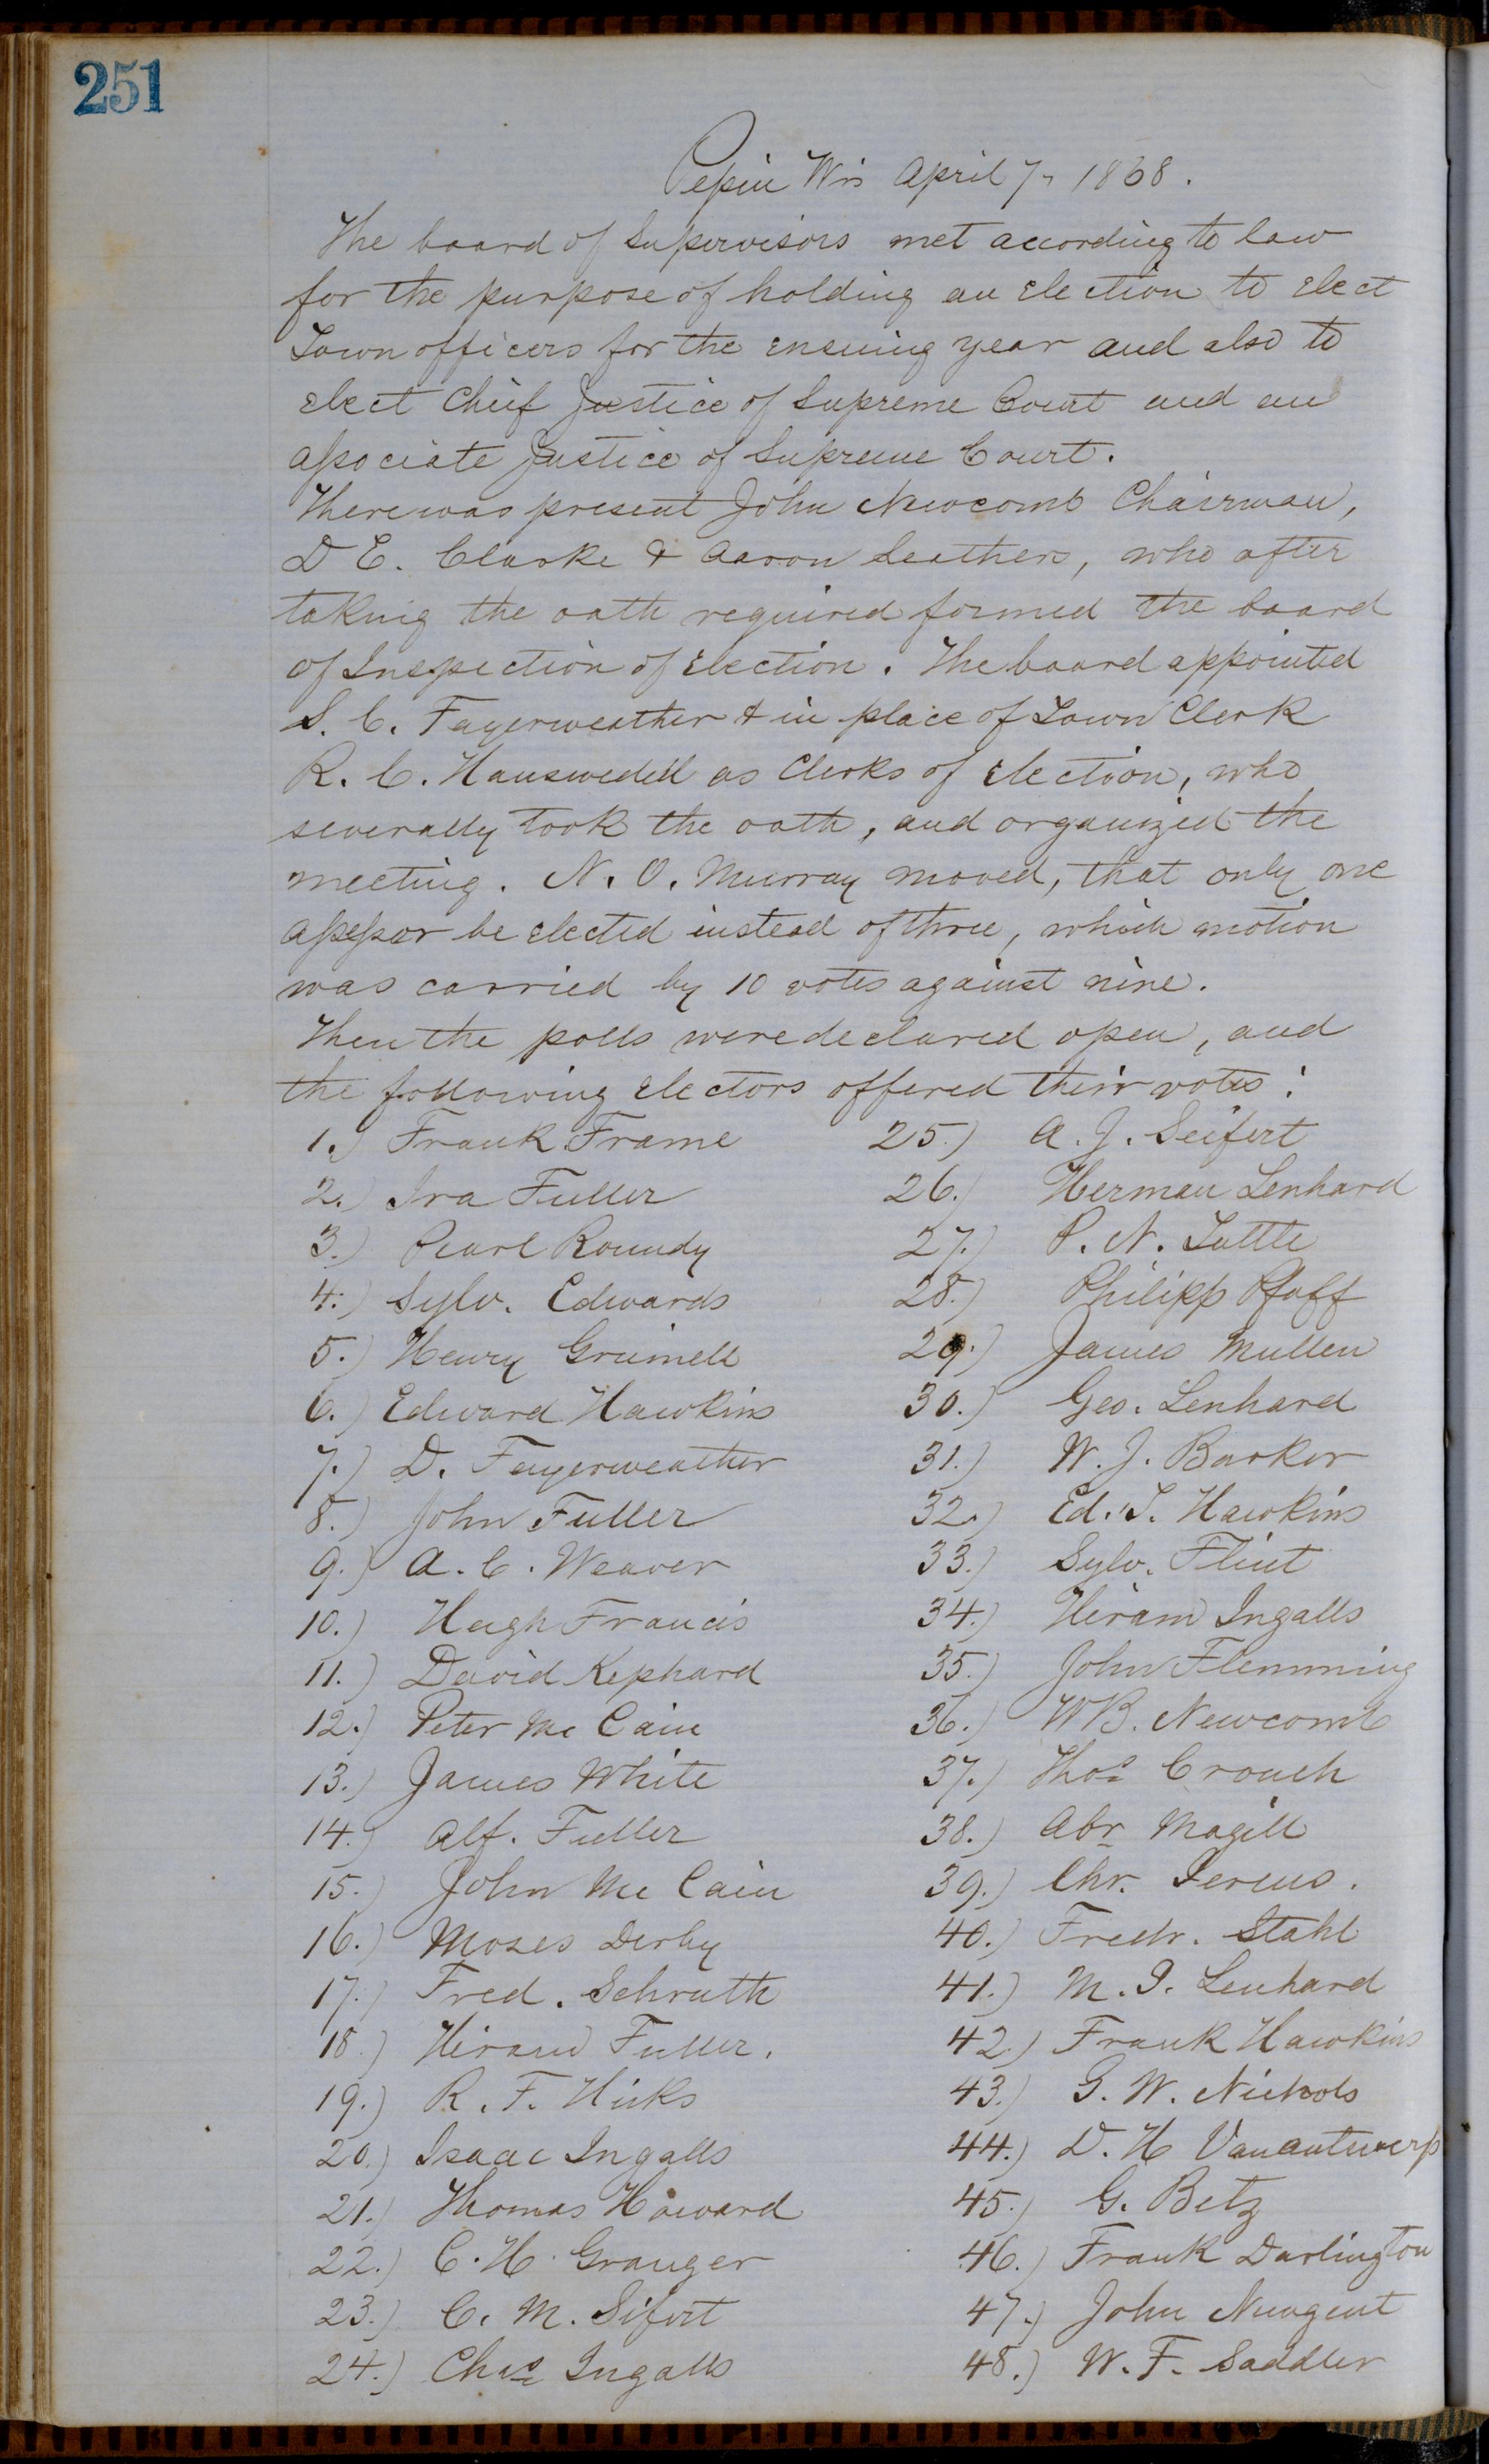 251
Pepin Wis April 7, 1868.
The board of Supervisors met according to law
for the purpose of holding an election to elect
Town officers for the ensuing year and also to
elect Chief Justice of Supreme Court and an
associate Justice of Supreme Court.
There was present John Newcomb Chairman,
D E. Clarke & Aaron Leathers, who after
taking the oath required formed the board
of Inspection of Election. The board appointed
S. C. Fayerweather & in place of Town Clerk
R. C. Hauswedell as Clerks of Election, who
severally took the oath, and organized the
meeting. N. O. Murray moved, that only one
assessor be elected instead of three, which motion
was carried by 10 votes against nine.
Then the polls were declared open, and
the following electors offered their votes:
1.) Frank Frame
2.) Ira Fuller
3.) Pearl Roundy
4.) Sylv. Edwards
5.) Henry Grinnell
6.) Edward Hawkins
7.) D. Fayerweather
8.) John Fuller
9.) A. C. Weaver
10.) Hugh Francis
11.) David Kephard
12.) Peter Mc Cain
13.) James White
14.) Alf. Fuller
15.) John Mc Cain
16.) Moses Derby
17.) Fred. Schruth
18.) Hiram Fuller.
19.) R. F. Hicks
20.) Isaac Ingalls
21.) Thomas Howard
22.) C. H. Granger
23.) C. M. Sifert
24.) Chas Ingalls
25.) A. J. Seifert
26.) Herman Lenhard
27.) P. N. Tuttle
28.) Philipp Pfaff
29.) James Mullen
30.) Geo. Lenhard
31.) W. J. Barker
32.) Ed. T. Hawkins
33.) Sylv. Flint
34.) Hiram Ingalls
35.) John Flemming
36.) W B. Newcomb
37.) Thos Crouch
38.) Abr Magill
39.) Chr.
40.) Fredr. Stahl
41.) M. I. Lenhard
42.) Frank Hawkins
43.) G. W. Nichols
44.) D. H Vanantwerp
45.) G. Betz
46.) Frank Darlington
47.) John Nuugent
48.) W. F. Saddler